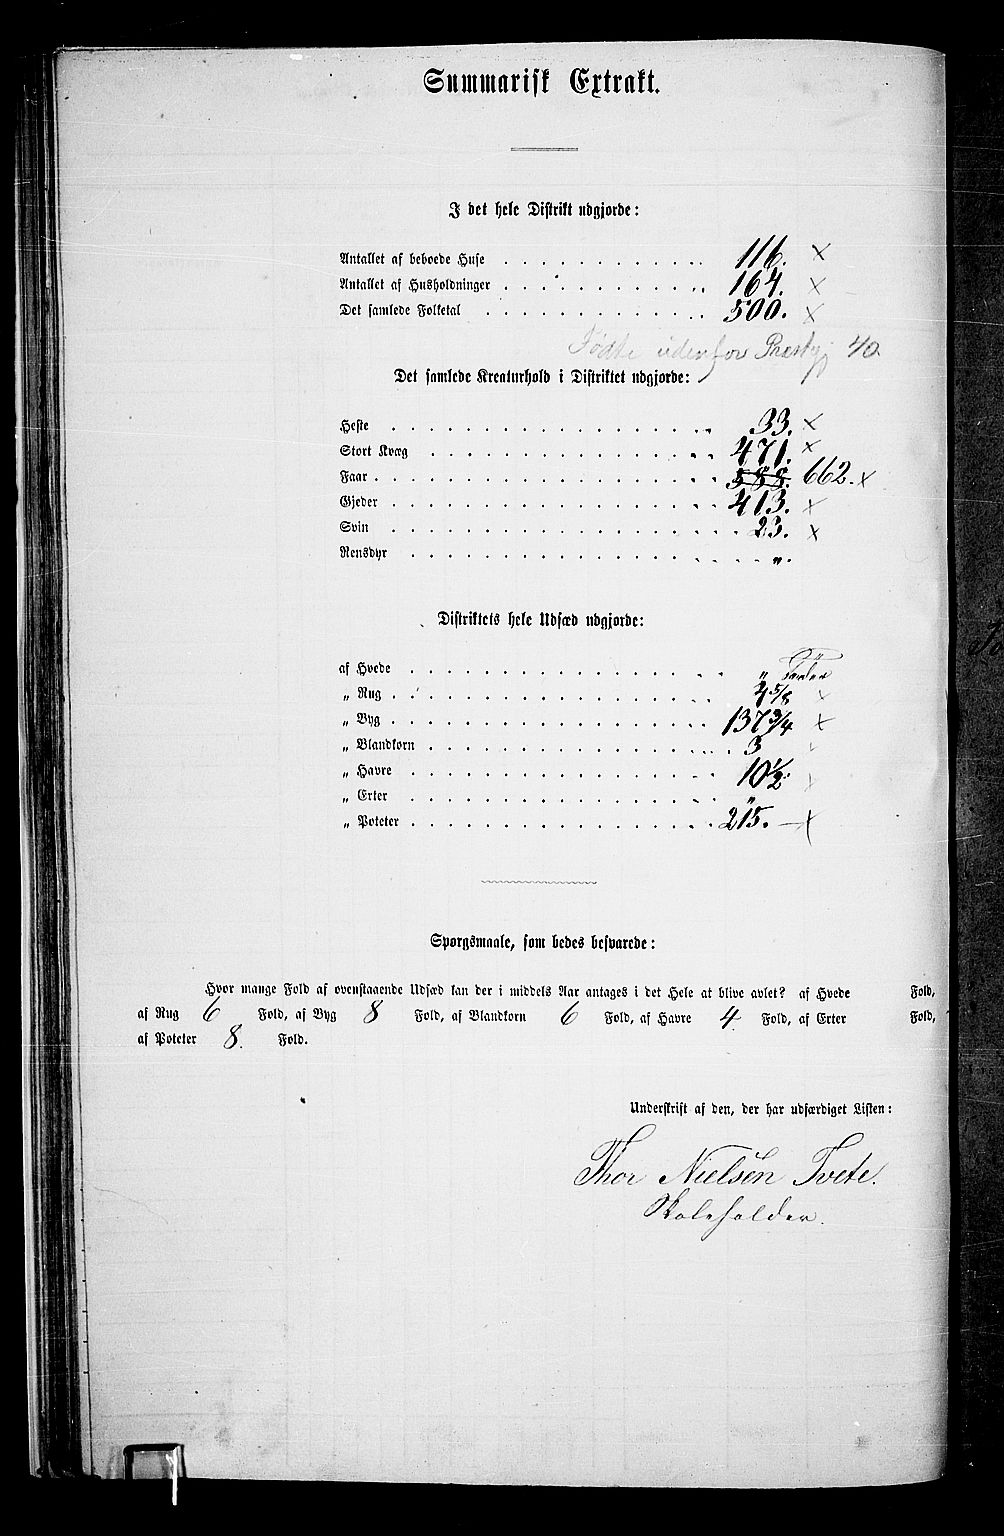 Summarisk Extrakt.
I det hele Distrikt udgjorde:
Antallet af beboede Huse 116. ×
Antallet af Husholdninger 164. ×
Det samlede Folketal 500. ×
Fødte udenfor Præstgj 40.
Det samlede Kreaturhold i Distriktet udgjorde:
Heste 33. ×
Stort Kvæg 471. ×
Faar 588. 662. ×
Gjeder 413. ×
Svin 23. ×
Rensdyr „.
Distriktets hele Udsæd udgjorde:
af Hvede „ Tønder
„ Rug 4 5/8 ×
„ Byg 137 3/4 ×
„ Blandkorn 3
„ Havre 10 1/2. ×
„ Erter „
„ Poteter 215. — ×
Spørgsmaale, som bedes besvarede:
Hvor mange Fold af ovenstaaende Udsæd kan der i middels Aar antages i det Hele at blive avlet? af Hvede Fold,
af Rug 6 Fold, af Byg 8 Fold, af Blandkorn 6 Fold, af Havre 4 Fold, af Erter Fold,
af Poteter 8. Fold.
Underskrift af den, der har udfærdiget Listen:
Thor Nielsen Tvete.
Skoleholder.